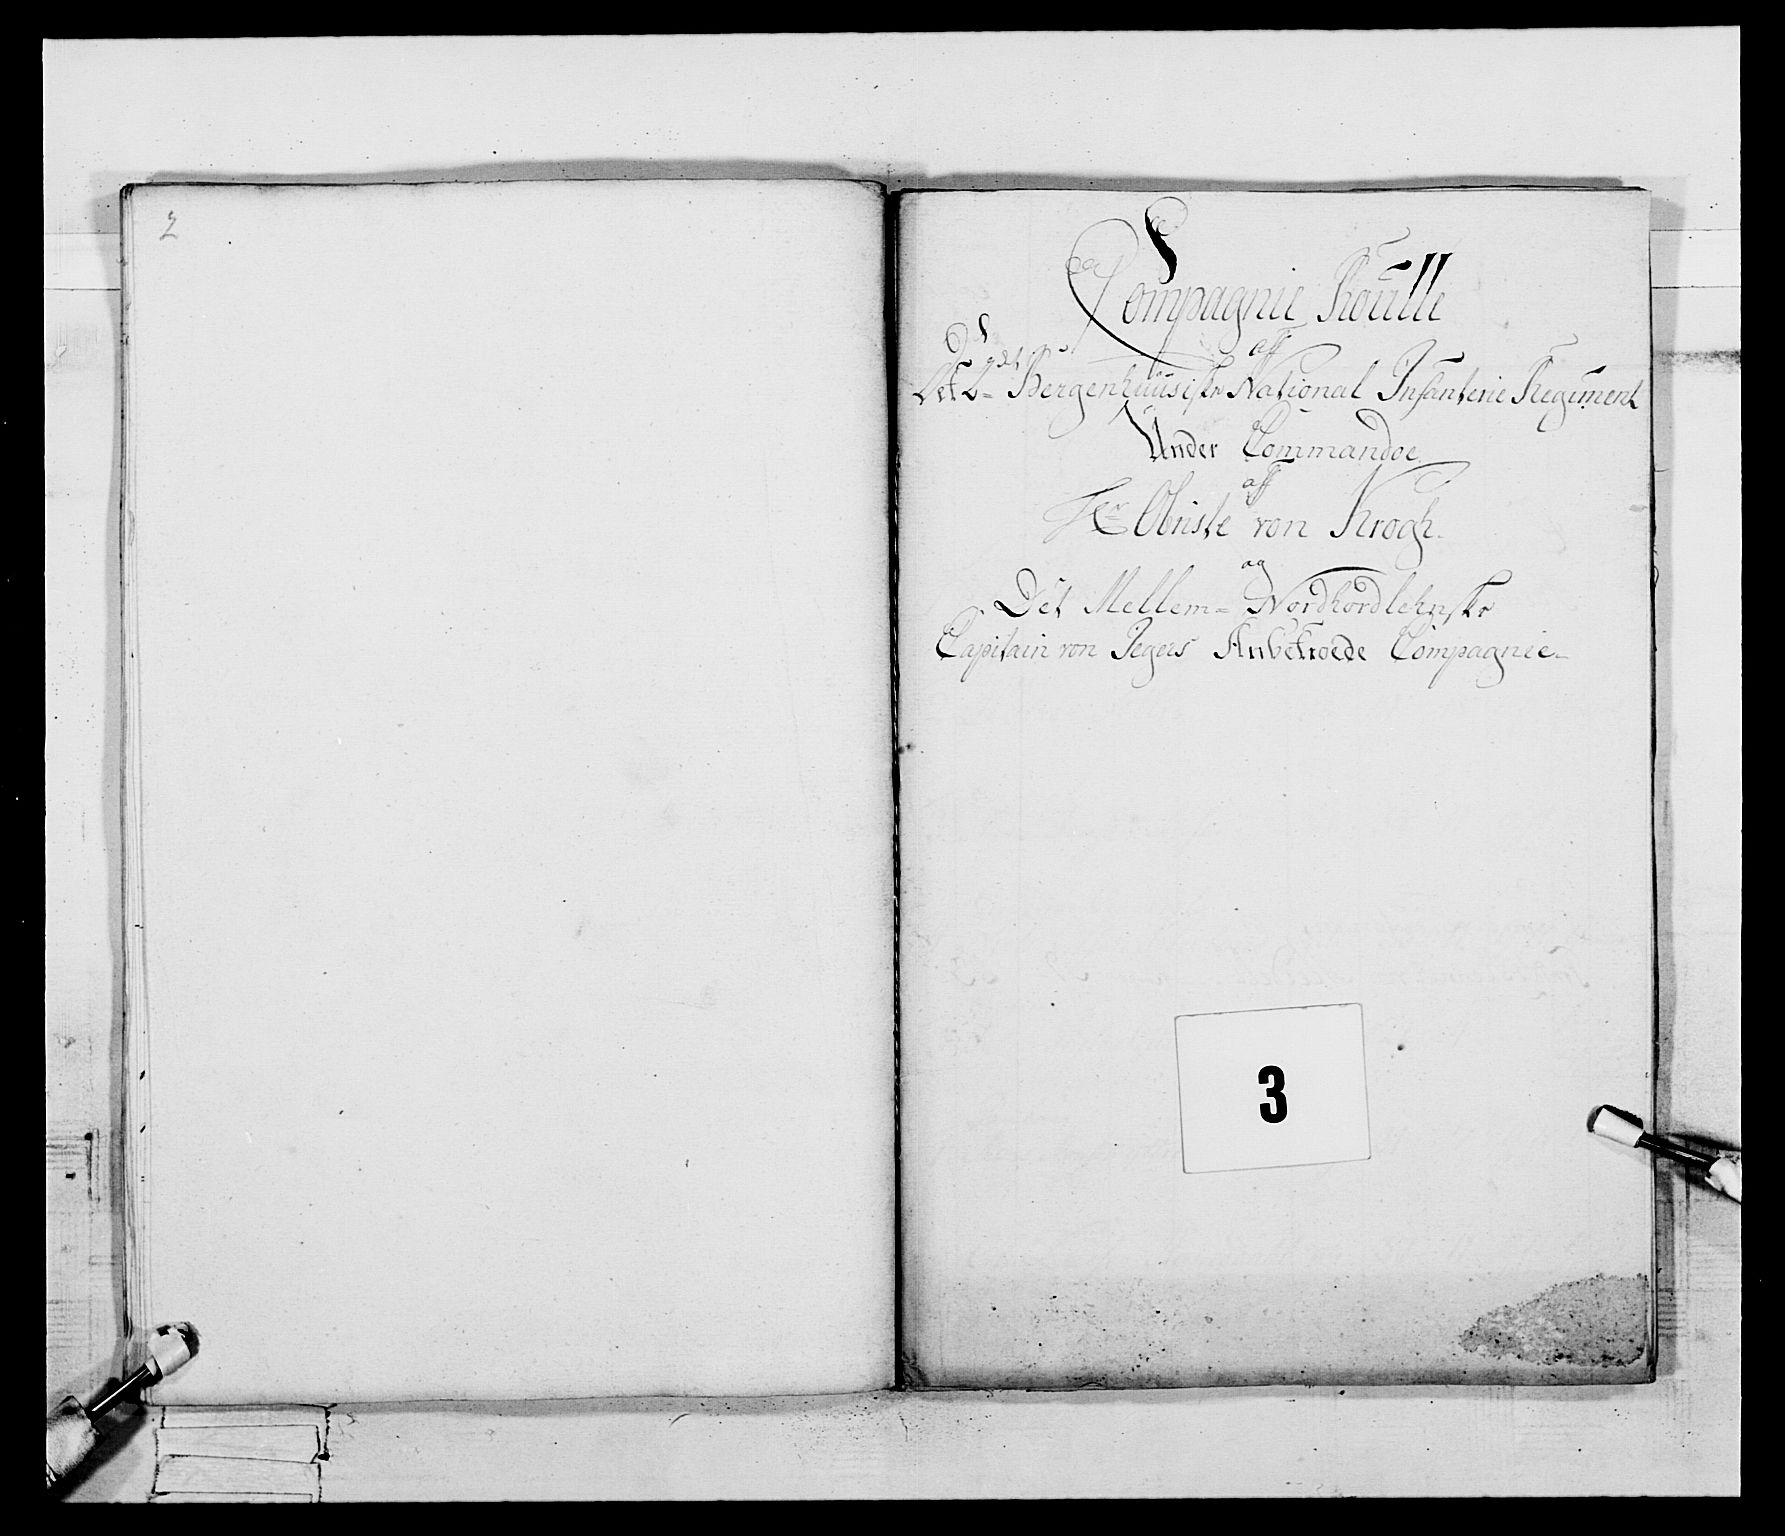 2
Compagnie Roulle
aff
Det 2det Bergenhuusiske National Infanterie Regiment
Under Commandoe
aff
Hr Obriste von Krogh.
og
Det Mellem= Nordhordlehnske
Capitain von Jegers Anbetroede Compagnie
3